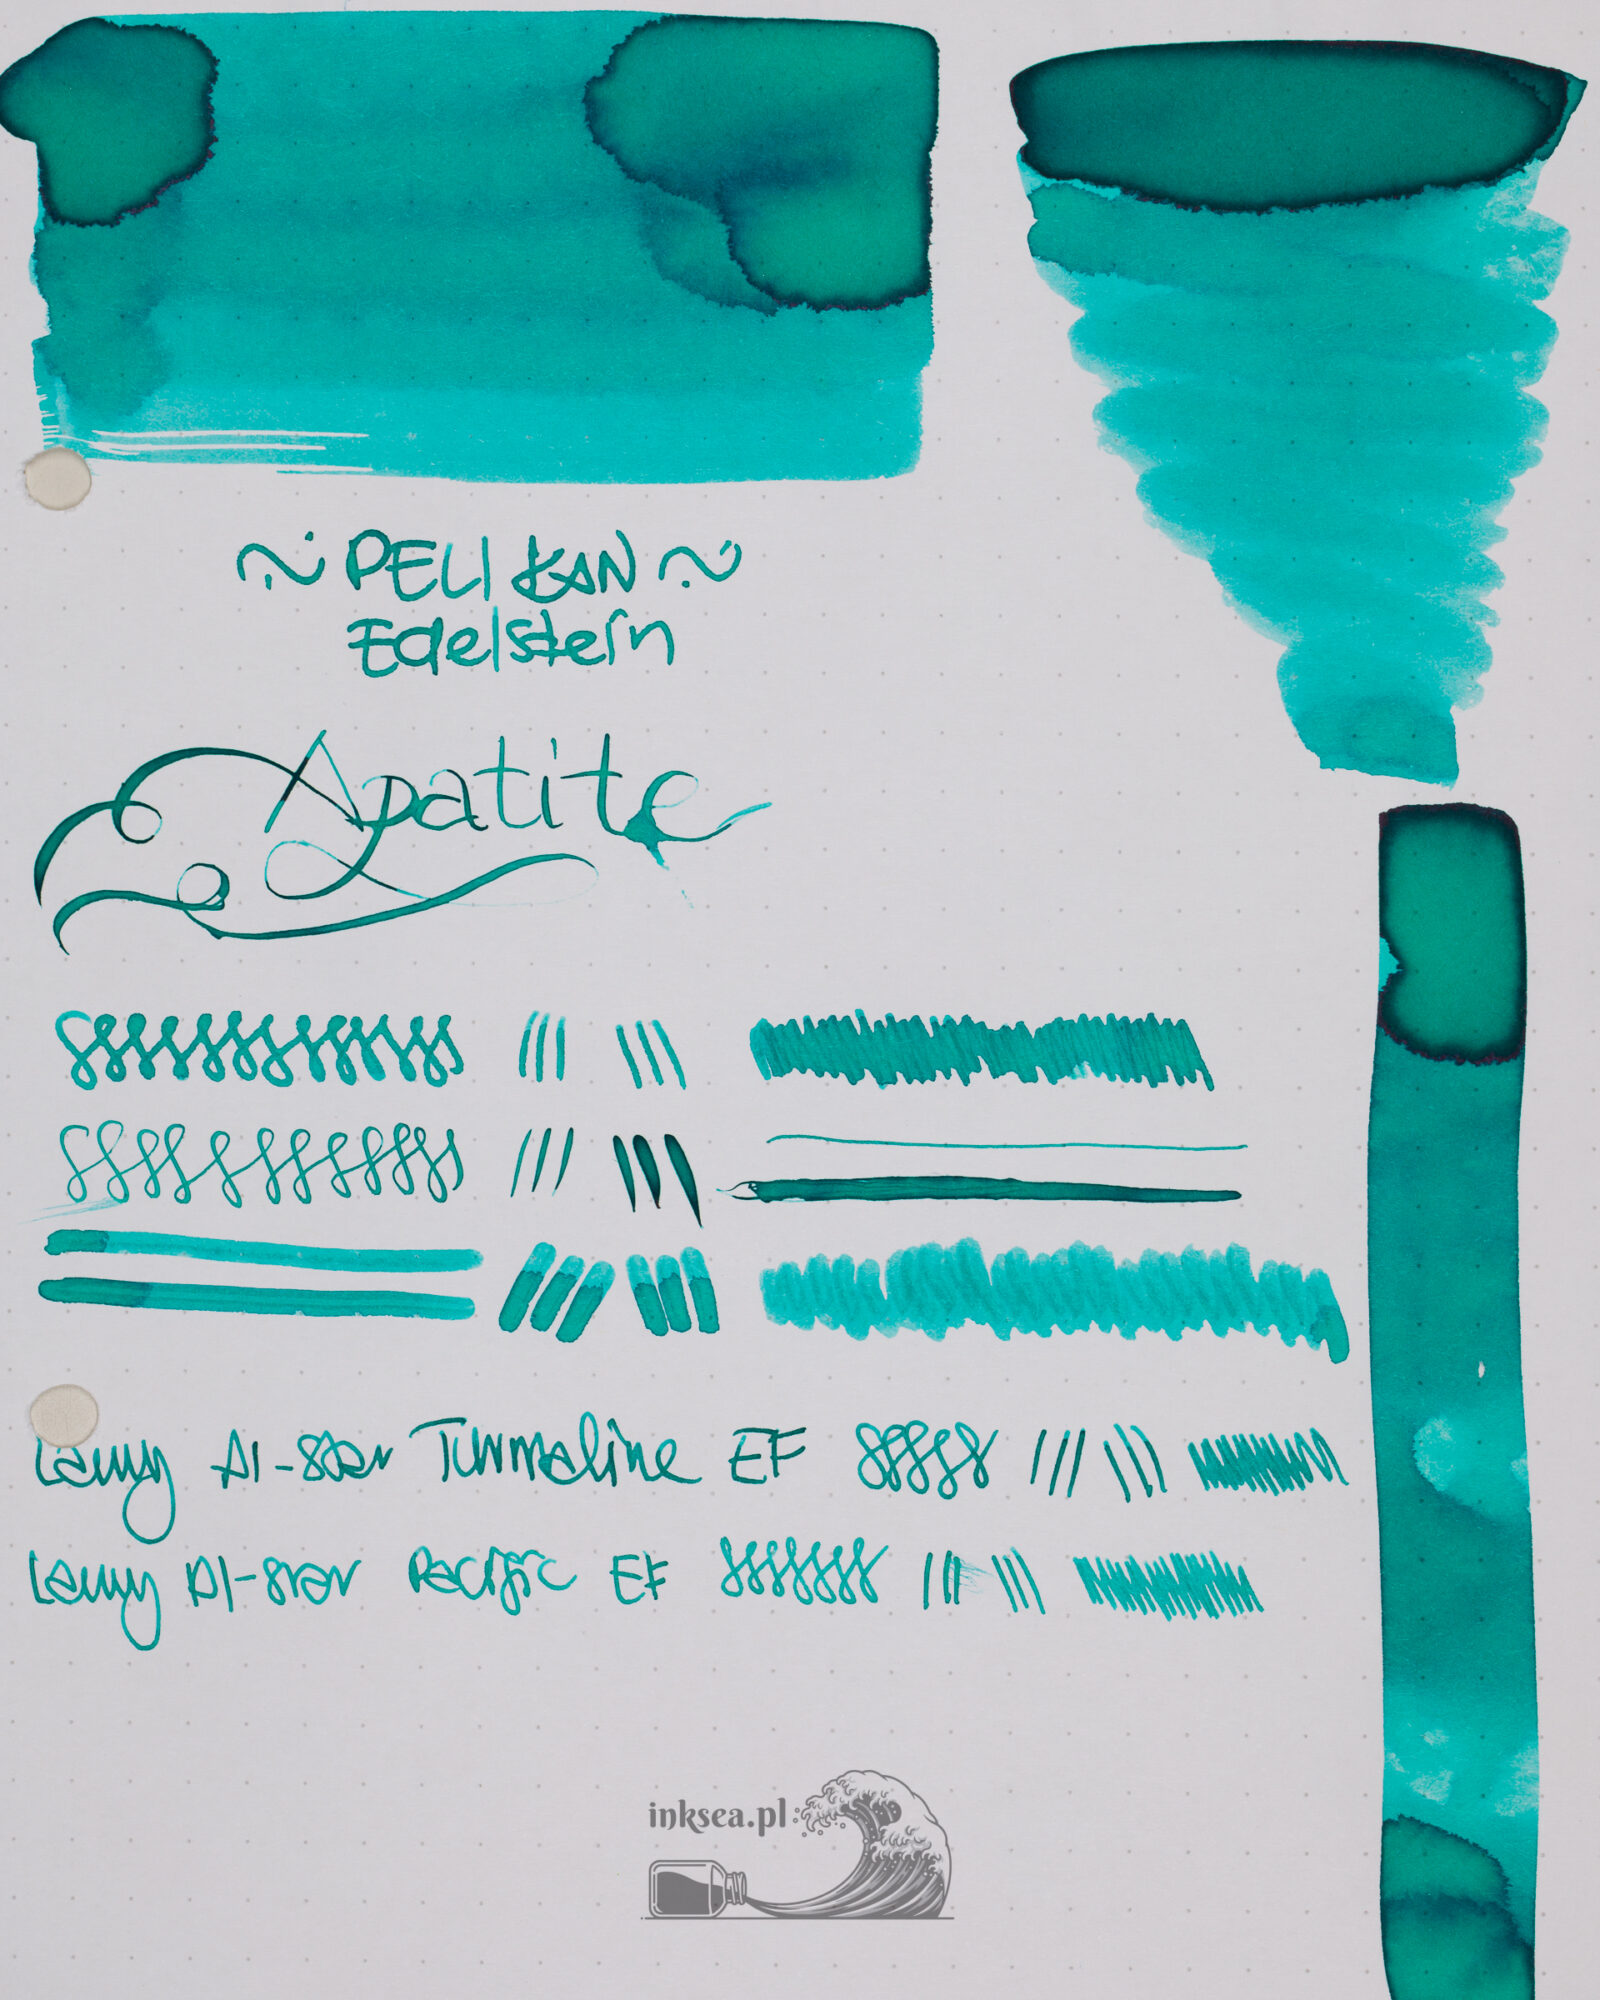 ~ PELIKAN ~
Edelstein
Apatite
Lamy Al-star Turmaline EF
Lamy Al-star Pacific EF
inksea.pl